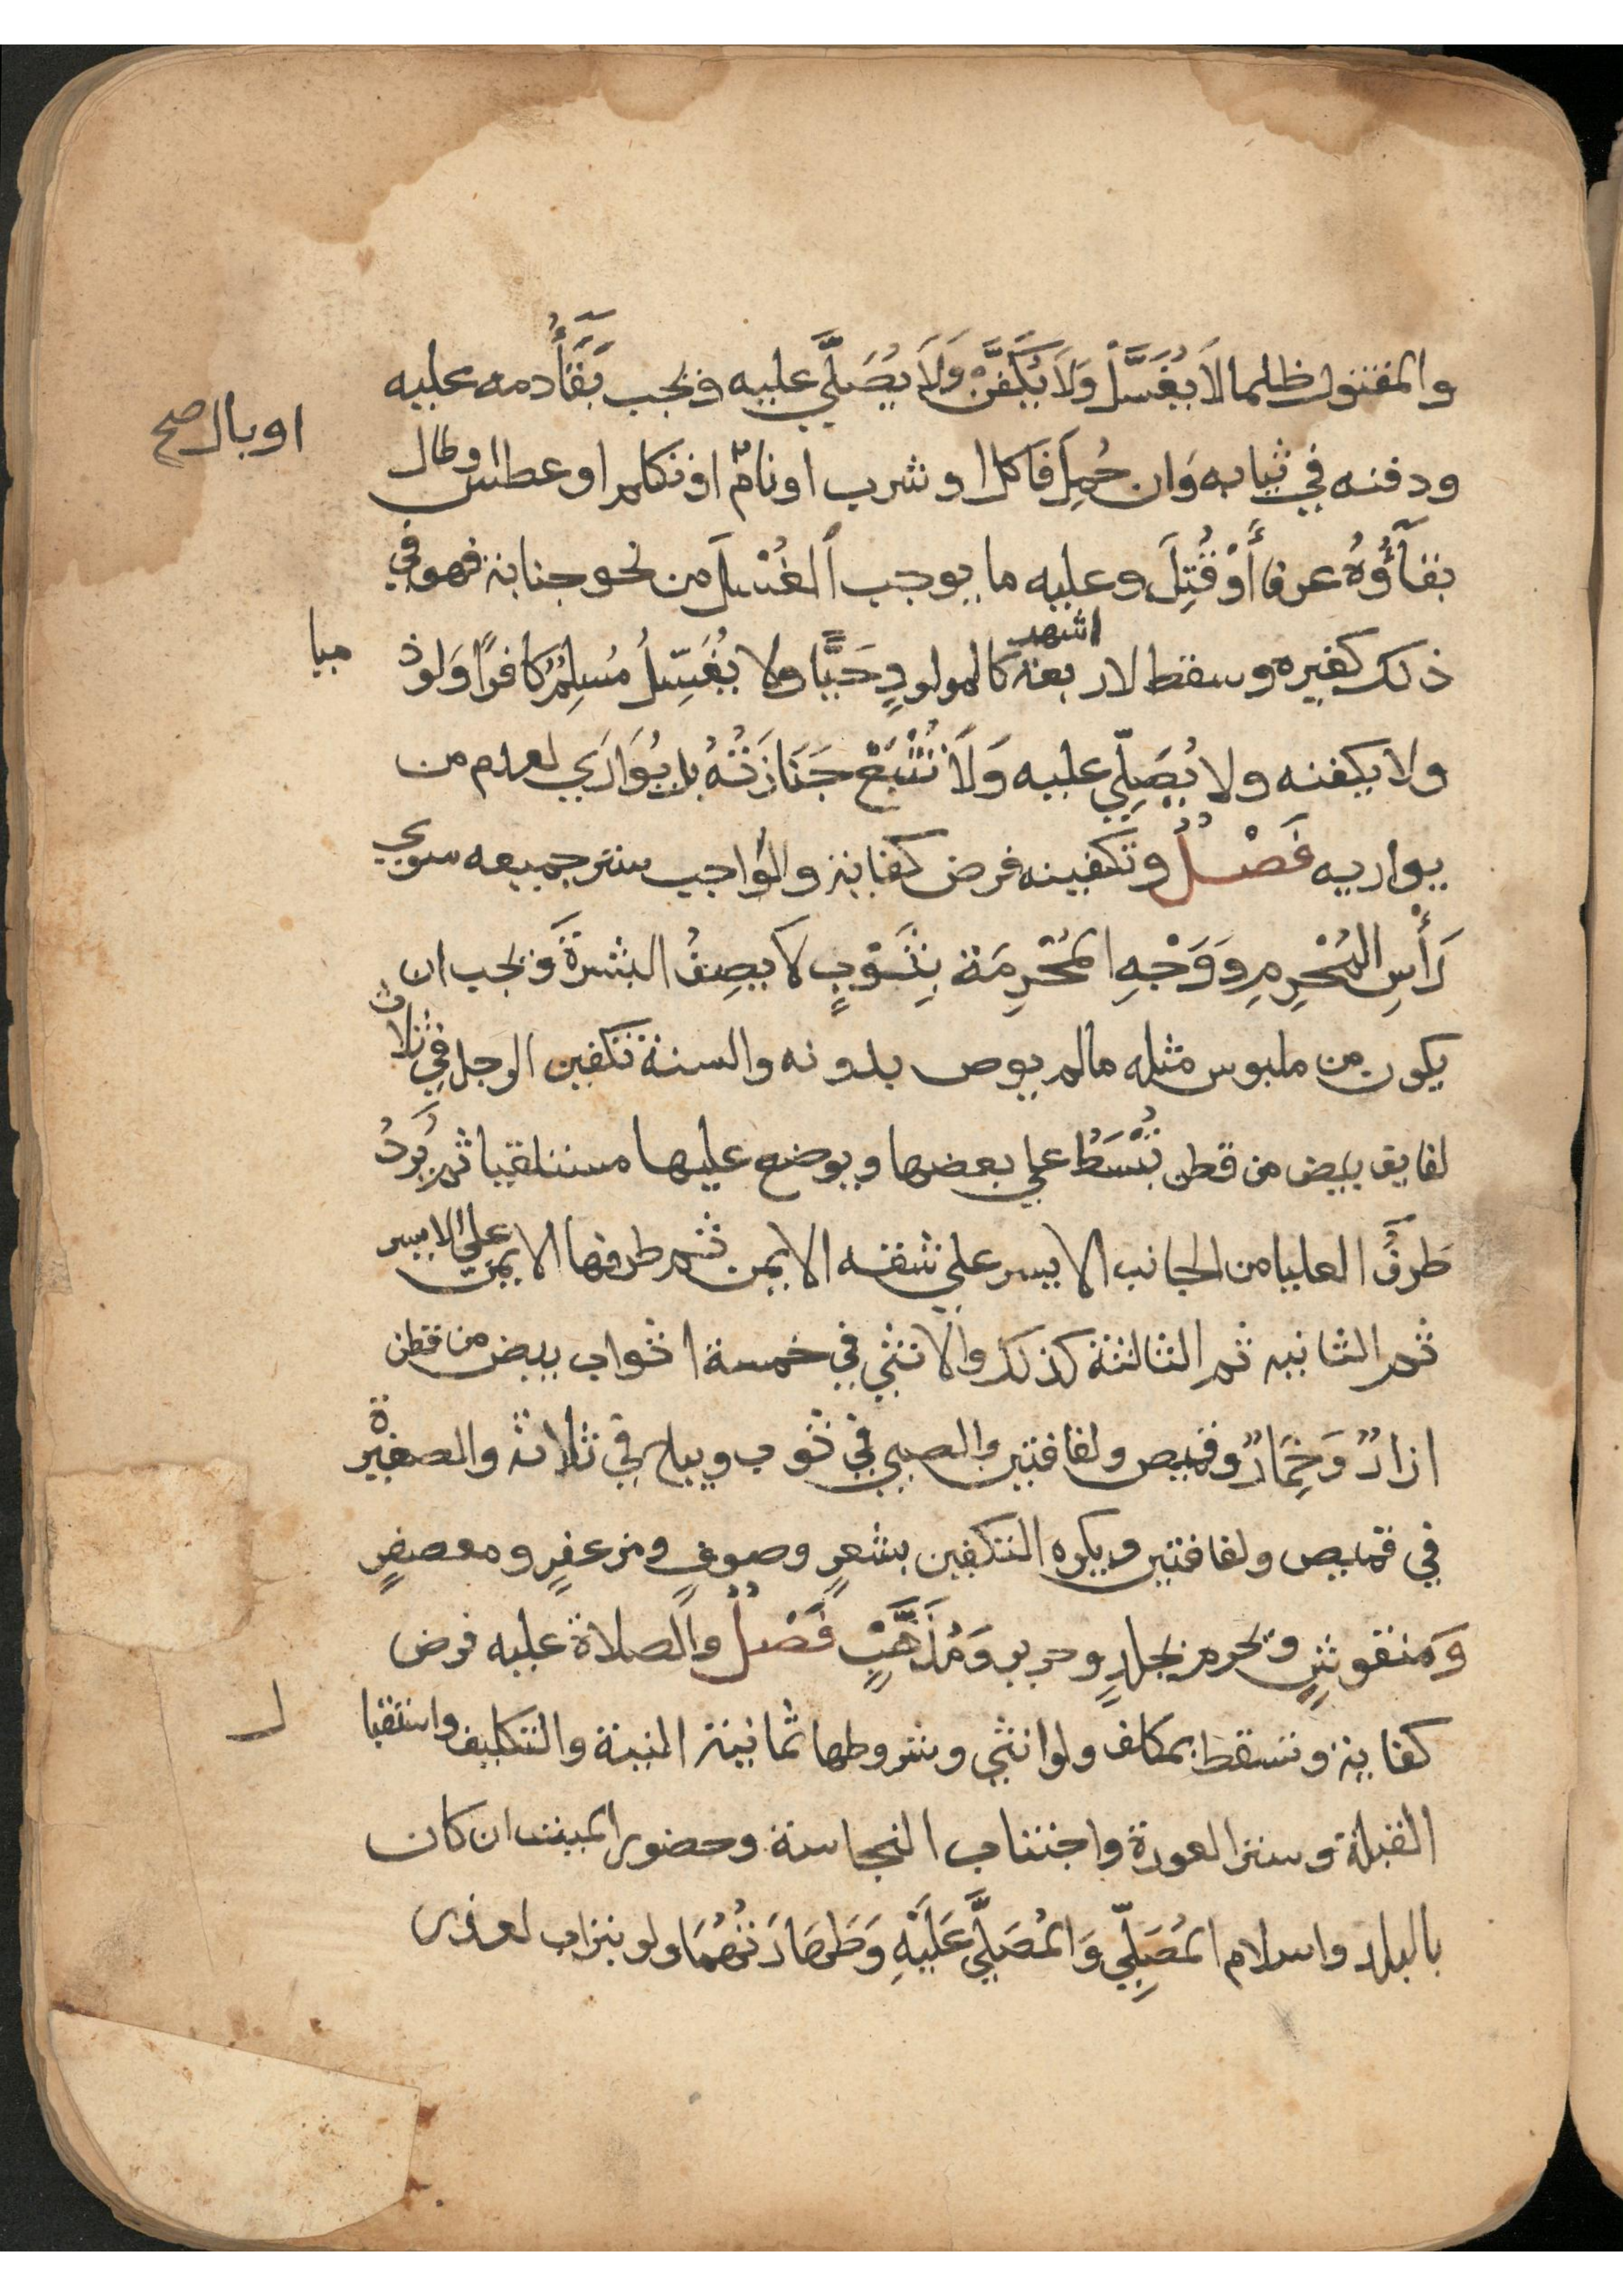 والمقتول ظلما لَا يُغَسَّلُ وَلَا يُكَفَّنُ وَلَا يُصَلَّي عليه ويجب بَقَآءُ دمه عليه
ودفنه في ثيابه وَان حُمِلَ فاكل او شرب او نام او تكلم او عطس وطال
او بال صح
بقآؤُهُ عرفا أَوْ قُتِلَ وعليه ما يوجب الغُسْلَ من نحو جنابة فهو في
ذلك كغيره وسقط لاربعة اشهر كالمولودِ حَيًّا ولا يُغَسِّلُ مُسْلِمٌ كافرًا وَلو ذ
ميا
ولا يكفنه ولا يُصَلِّي عليه وَلَا تُتْبَعُ جَنَازَتُهُ بل يُوَارَي لعدم من
يواريه فَصْلٌ وتكفينه فرض كفاية والواجب ستر جميعه سوي
رَأْسِ المُحْرِمِ وَوَجْهِ المُحْرِمَة بِثَوْبٍ لا يصِفُ البشرةَ ويجب ان
يكون من ملبوس مثله مالم يوص بدونه والسنة تكفين الرجل في ثلاث
لفايف بيض من قطن تُبْسَطُ علي بعضها ويوضع عليها مستلقيا ثم يُرَدُّ
طرفُ العليا من الجانب الايسر علي شقه الايمن ثم طرفها الايمن علي الايسر
ثم الثانيه ثم الثالثة كذلك والانثي في خمسة اثواب بيض من قطن
ازارٌ وَخِمَارٌ وقميص ولفافتين والصبي في ثوب ويباح في ثلاثة والصغيرة
في قميص ولفافتين ويكره التكفين بشعرٍ وصوفٍ ومزعفرٍ ومعصفرٍ
وَمنقوشٍ ويحرم بجلدٍ وحرير وَمُذَهَّبٍ فَصْلٌ والصلاة عليه فرض
كفاية وتسقط بمكلف ولو انثي وشروطها ثمانية النية والتكليف واستقبا
ل
القبلة وستر العورة واجتناب النجاسة وحضور الميت ان كان
بالبلد واسلام المُصَلِّي وَالمُصَلَّي عَلَيْهِ وَطَهَارَتُهُمَا ولو بتراب لعذر